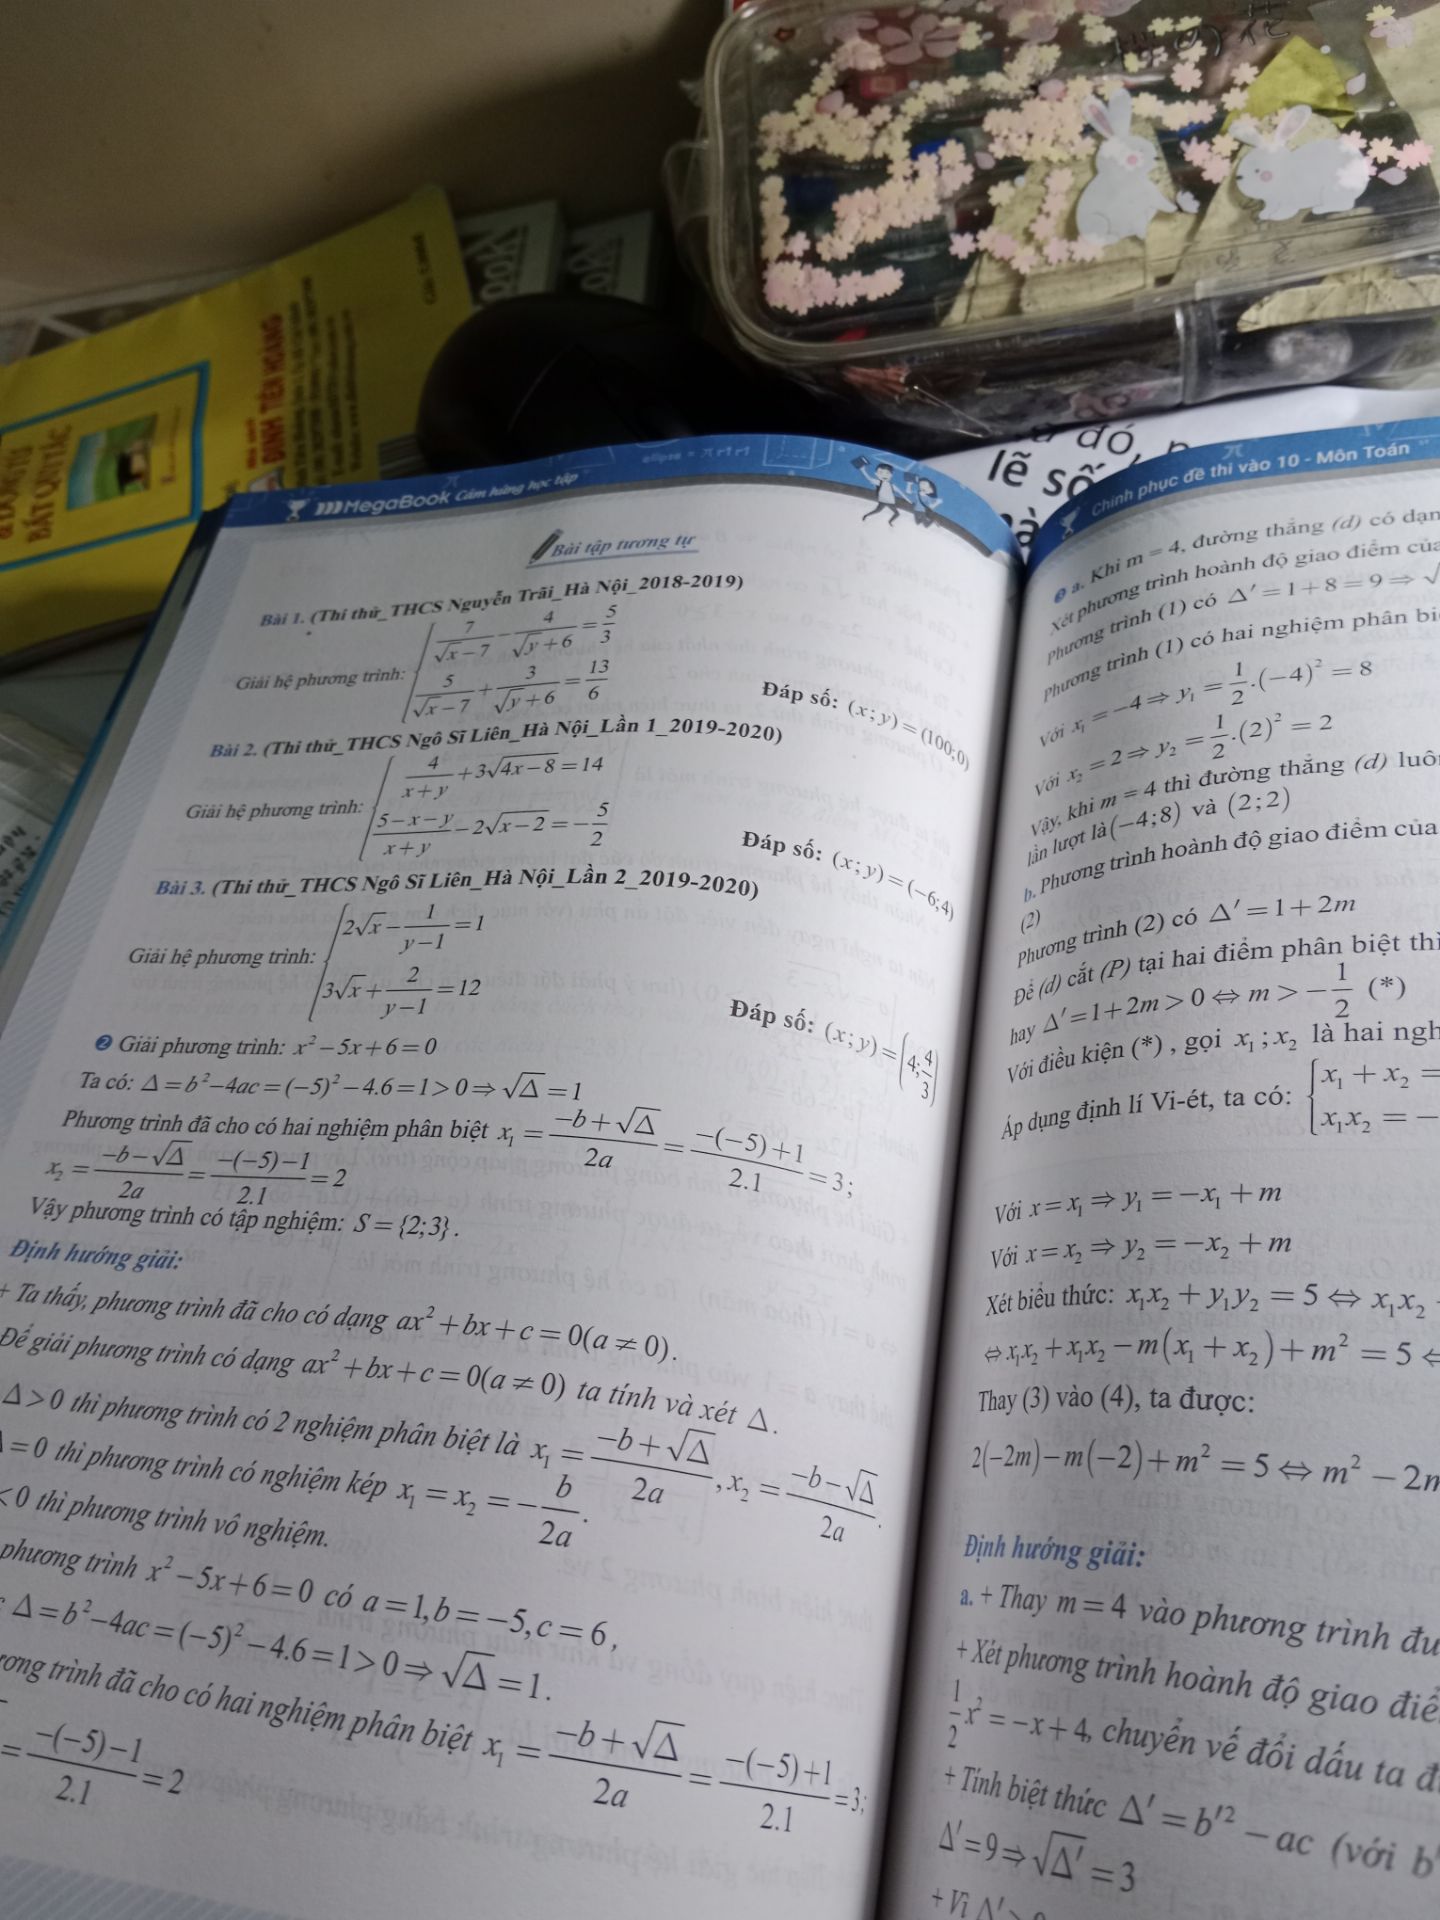 の花
BẤT QUI TẮC
ĐINH TIẾN HOÀNG
lẽ số
MegaBook Cảm hứng học tập
Bài tập tương tự
Bài 1. (Thi thử_THCS Nguyễn Trãi_Hà Nội_2018-2019)
Giải hệ phương trình: { 7/(√x−7) − 4/(√y+6) = 5/3
5/(√x−7) + 3/(√y+6) = 13/6
Đáp số: (x; y) = (100;0)
Bài 2. (Thi thử_THCS Ngô Sĩ Liên_Hà Nội_Lần 1_2019-2020)
Giải hệ phương trình: { 4/(x+y) + 3√(4x−8) = 14
(5−x−y)/(x+y) − 2√(x−2) = −5/2
Đáp số: (x; y) = (−6;4)
Bài 3. (Thi thử_THCS Ngô Sĩ Liên_Hà Nội_Lần 2_2019-2020)
Giải hệ phương trình: { 2√x − 1/(y−1) = 1
3√x + 2/(y−1) = 12
Đáp số: (x; y) = (4; 4/3)
❷ Giải phương trình: x² − 5x + 6 = 0
Ta có: Δ = b² − 4ac = (−5)² − 4.6 = 1 > 0 ⇒ √Δ = 1
Phương trình đã cho có hai nghiệm phân biệt x₁ = (−b + √Δ)/2a = (−(−5)+1)/2.1 = 3;
x₂ = (−b − √Δ)/2a = (−(−5)−1)/2.1 = 2
Vậy phương trình có tập nghiệm: S = {2;3}.
Định hướng giải:
+ Ta thấy, phương trình đã cho có dạng ax² + bx + c = 0 (a ≠ 0).
Để giải phương trình có dạng ax² + bx + c = 0 (a ≠ 0) ta tính và xét Δ.
Δ > 0 thì phương trình có 2 nghiệm phân biệt là x₁ = (−b + √Δ)/2a, x₂ = (−b − √Δ)/2a.
Δ = 0 thì phương trình có nghiệm kép x₁ = x₂ = −b/2a.
< 0 thì phương trình vô nghiệm.
phương trình x² − 5x + 6 = 0 có a = 1, b = −5, c = 6,
Δ = b² − 4ac = (−5)² − 4.6 = 1 > 0 ⇒ √Δ = 1.
ương trình đã cho có hai nghiệm phân biệt x₁ = (−b + √Δ)/2a = (−(−5)+1)/2.1 = 3;
= (−(−5)−1)/2.1 = 2
Chinh phục đề thi vào 10 - Môn Toán
❸ a. Khi m = 4, đường thẳng (d) có dạn
Xét phương trình hoành độ giao điểm củ
Phương trình (1) có Δ' = 1 + 8 = 9 ⇒ √
Phương trình (1) có hai nghiệm phân bi
Với x₁ = −4 ⇒ y₁ = 1/2.(−4)² = 8
Với x₂ = 2 ⇒ y₂ = 1/2.(2)² = 2
Vậy, khi m = 4 thì đường thẳng (d) luô
lần lượt là (−4;8) và (2;2)
b. Phương trình hoành độ giao điểm của
(2)
Phương trình (2) có Δ' = 1 + 2m
Để (d) cắt (P) tại hai điểm phân biệt thì
hay Δ' = 1 + 2m > 0 ⇔ m > −1/2 (*)
Với điều kiện (*), gọi x₁; x₂ là hai ngh
Áp dụng định lí Vi-ét, ta có: { x₁ + x₂ =
x₁x₂ = −
Với x = x₁ ⇒ y₁ = −x₁ + m
Với x = x₂ ⇒ y₂ = −x₂ + m
Xét biểu thức: x₁x₂ + y₁y₂ = 5 ⇔ x₁x₂
⇔ x₁x₂ + x₁x₂ − m(x₁ + x₂) + m² = 5 ⇔
Thay (3) vào (4), ta được:
2(−2m) − m(−2) + m² = 5 ⇔ m² − 2m
Định hướng giải:
a. + Thay m = 4 vào phương trình đu
+ Xét phương trình hoành độ giao điể
1/2x² = −x + 4, chuyển vế đổi dấu ta đ
+ Tính biệt thức Δ' = b'² − ac (với b'
Δ' = 9 ⇒ √Δ' = 3
+ Vì Δ' >